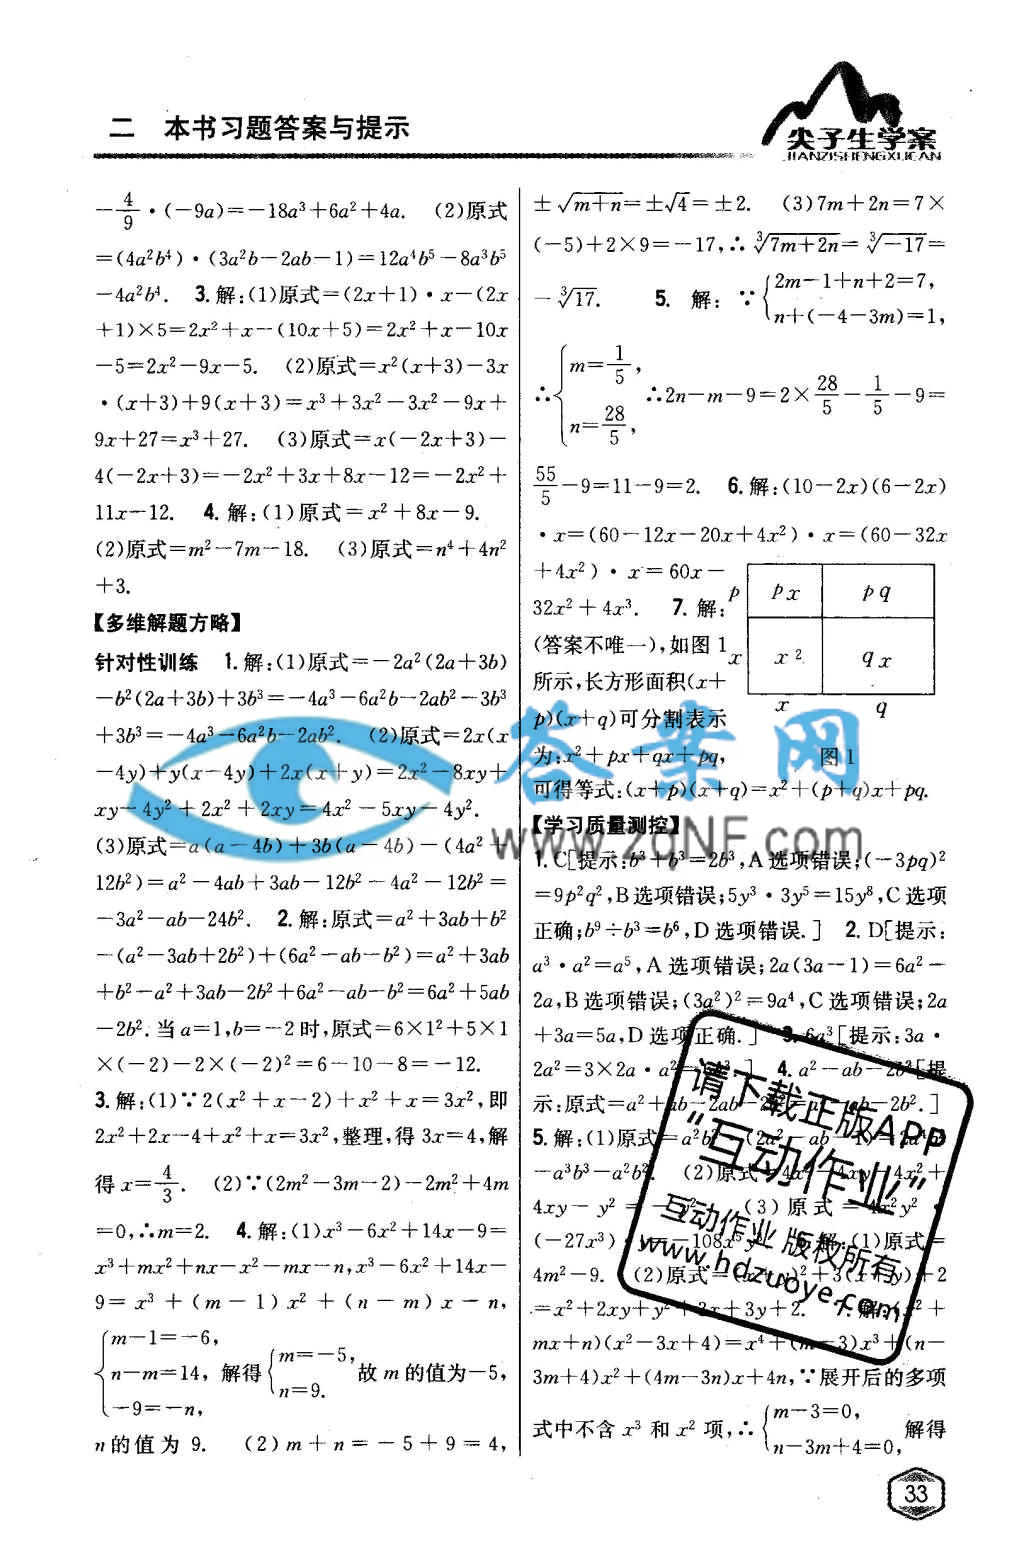 二 本书习题答案与提示
尖子生学案
JIANZISHENGXUEAN
-4/9·(-9a)=-18a³+6a²+4a. (2)原式
=(4a²b⁴)·(3a²b-2ab-1)=12a⁴b⁵-8a³b⁵
-4a²b⁴. 3.解:(1)原式=(2x+1)·x-(2x
+1)×5=2x²+x-(10x+5)=2x²+x-10x
-5=2x²-9x-5. (2)原式=x²(x+3)-3x
·(x+3)+9(x+3)=x³+3x²-3x²-9x+
9x+27=x³+27. (3)原式=x(-2x+3)-
4(-2x+3)=-2x²+3x+8x-12=-2x²+
11x-12. 4.解:(1)原式=x²+8x-9.
(2)原式=m²-7m-18. (3)原式=n⁴+4n²
+3.
【多维解题方略】
针对性训练 1.解:(1)原式=-2a²(2a+3b)
-b²(2a+3b)+3b³=-4a³-6a²b-2ab²-3b³
+3b³=-4a³-6a²b-2ab². (2)原式=2x(x
-4y)+y(x-4y)+2x(x+y)=2x²-8xy+
xy-4y²+2x²+2xy=4x²-5xy-4y².
(3)原式=a(a-4b)+3b(a-4b)-(4a²+
12b²)=a²-4ab+3ab-12b²-4a²-12b²=
-3a²-ab-24b². 2.解:原式=a²+3ab+b²
-(a²-3ab+2b²)+(6a²-ab-b²)=a²+3ab
+b²-a²+3ab-2b²+6a²-ab-b²=6a²+5ab
-2b².当a=1,b=-2时,原式=6×1²+5×1
×(-2)-2×(-2)²=6-10-8=-12.
3.解:(1)∵2(x²+x-2)+x²+x=3x²,即
2x²+2x-4+x²+x=3x²,整理,得3x=4,解
得x=4/3. (2)∵(2m²-3m-2)-2m²+4m
=0,∴m=2. 4.解:(1)x³-6x²+14x-9=
x³+mx²+nx-x²-mx-n,x³-6x²+14x-
9=x³+(m-1)x²+(n-m)x-n,
{m-1=-6,
n-m=14, 解得{m=-5, n=9. 故m的值为-5,
-9=-n,
n的值为9. (2)m+n=-5+9=4,
±√m+n=±√4=±2. (3)7m+2n=7×
(-5)+2×9=-17,∴∛7m+2n=∛-17=
-∛17. 5. 解:∵{2m-1+n+2=7,
n+(-4-3m)=1,
∴{m=1/5, n=28/5, ∴2n-m-9=2×28/5-1/5-9=
55/5-9=11-9=2. 6.解:(10-2x)(6-2x)
·x=(60-12x-20x+4x²)·x=(60-32x
+4x²)·x=60x-
32x²+4x³. 7.解:
(答案不唯一),如图1
所示,长方形面积(x+
p)(x+q)可分割表示
为:x²+px+qx+pq,
p px pq
x x² qx
x q
图1
可得等式:(x+p)(x+q)=x²+(p+q)x+pq.
【学习质量测控】
1.C[提示:b³+b³=2b³,A选项错误;(-3pq)²
=9p²q²,B选项错误;5y³·3y⁵=15y⁸,C选项
正确;b⁹÷b³=b⁶,D选项错误.] 2.D[提示:
a³·a²=a⁵,A选项错误;2a(3a-1)=6a²-
2a,B选项错误;(3a²)²=9a⁴,C选项错误;2a
+3a=5a,D选项正确.] 3.6a³[提示:3a·
2a²=3×2a·a² 4.a²-ab-2b²[提
示:原式=a²+ab-2ab-2b²=a²-ab-2b².]
5.解:(1)原式=
-a³b³-a²b² (2)原式=
4xy-y²= (3)原式=4x²y²·
(-27x³) 6.解:(1)原式=
4m²-9. (2)原式=(x+y)²+3(x+y)+2
=x²+2xy+y²+3x+3y+2. 7.解:(x²+
mx+n)(x²-3x+4)=x⁴+(m-3)x³+(n-
3m+4)x²+(4m-3n)x+4n,∵展开后的多项
式中不含x³和x²项,∴{m-3=0, n-3m+4=0, 解得
答案网
www.zqNF.com
请下载正版APP
“互动作业”
互动作业 版权所有
www.hdzuoye.com
33